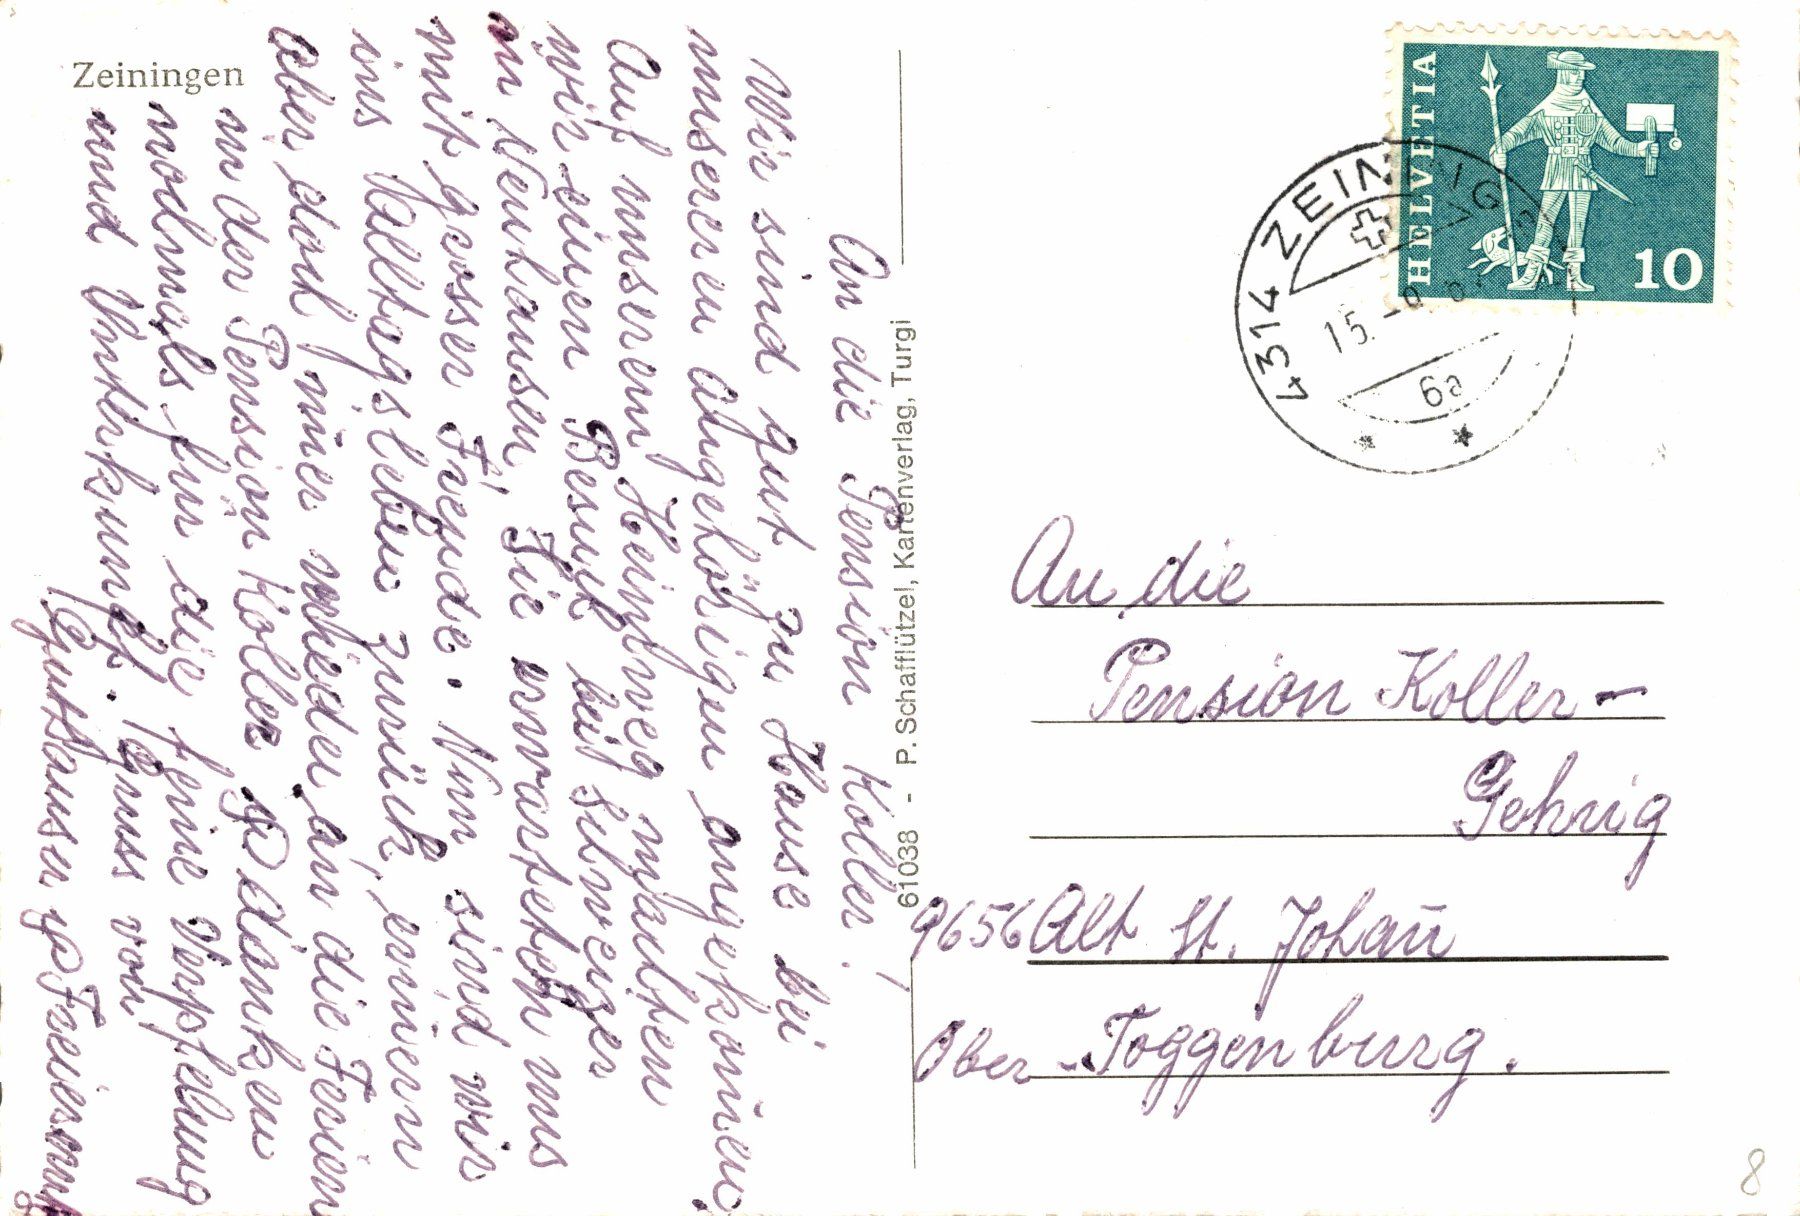 Zeiningen
An die Pension Koller!
Wir sind gut zu Hause bei
unseren Angehörigen angekommen
Auf unserem Heimweg machten
wir einen Besuch bei Schweizer
in Neuhausen, Sie erwarteten uns
mit grosser Freude. Nun sind wir
ins Alltagsleben zurück, erinern
aber doch imer wieder an die Ferien
in der Pension Koller danken
nochmals für die feine Verpflegung
und Unterkunft. Gruss von
61038 - P. Schafflützel, Kartenverlag, Turgi
HELVETIA
10
4314 ZEININGEN
15.
6a
An die
Pension Koller-
Gehrig
9656 Alt St. Johañ
Ober-Toggenburg.
8